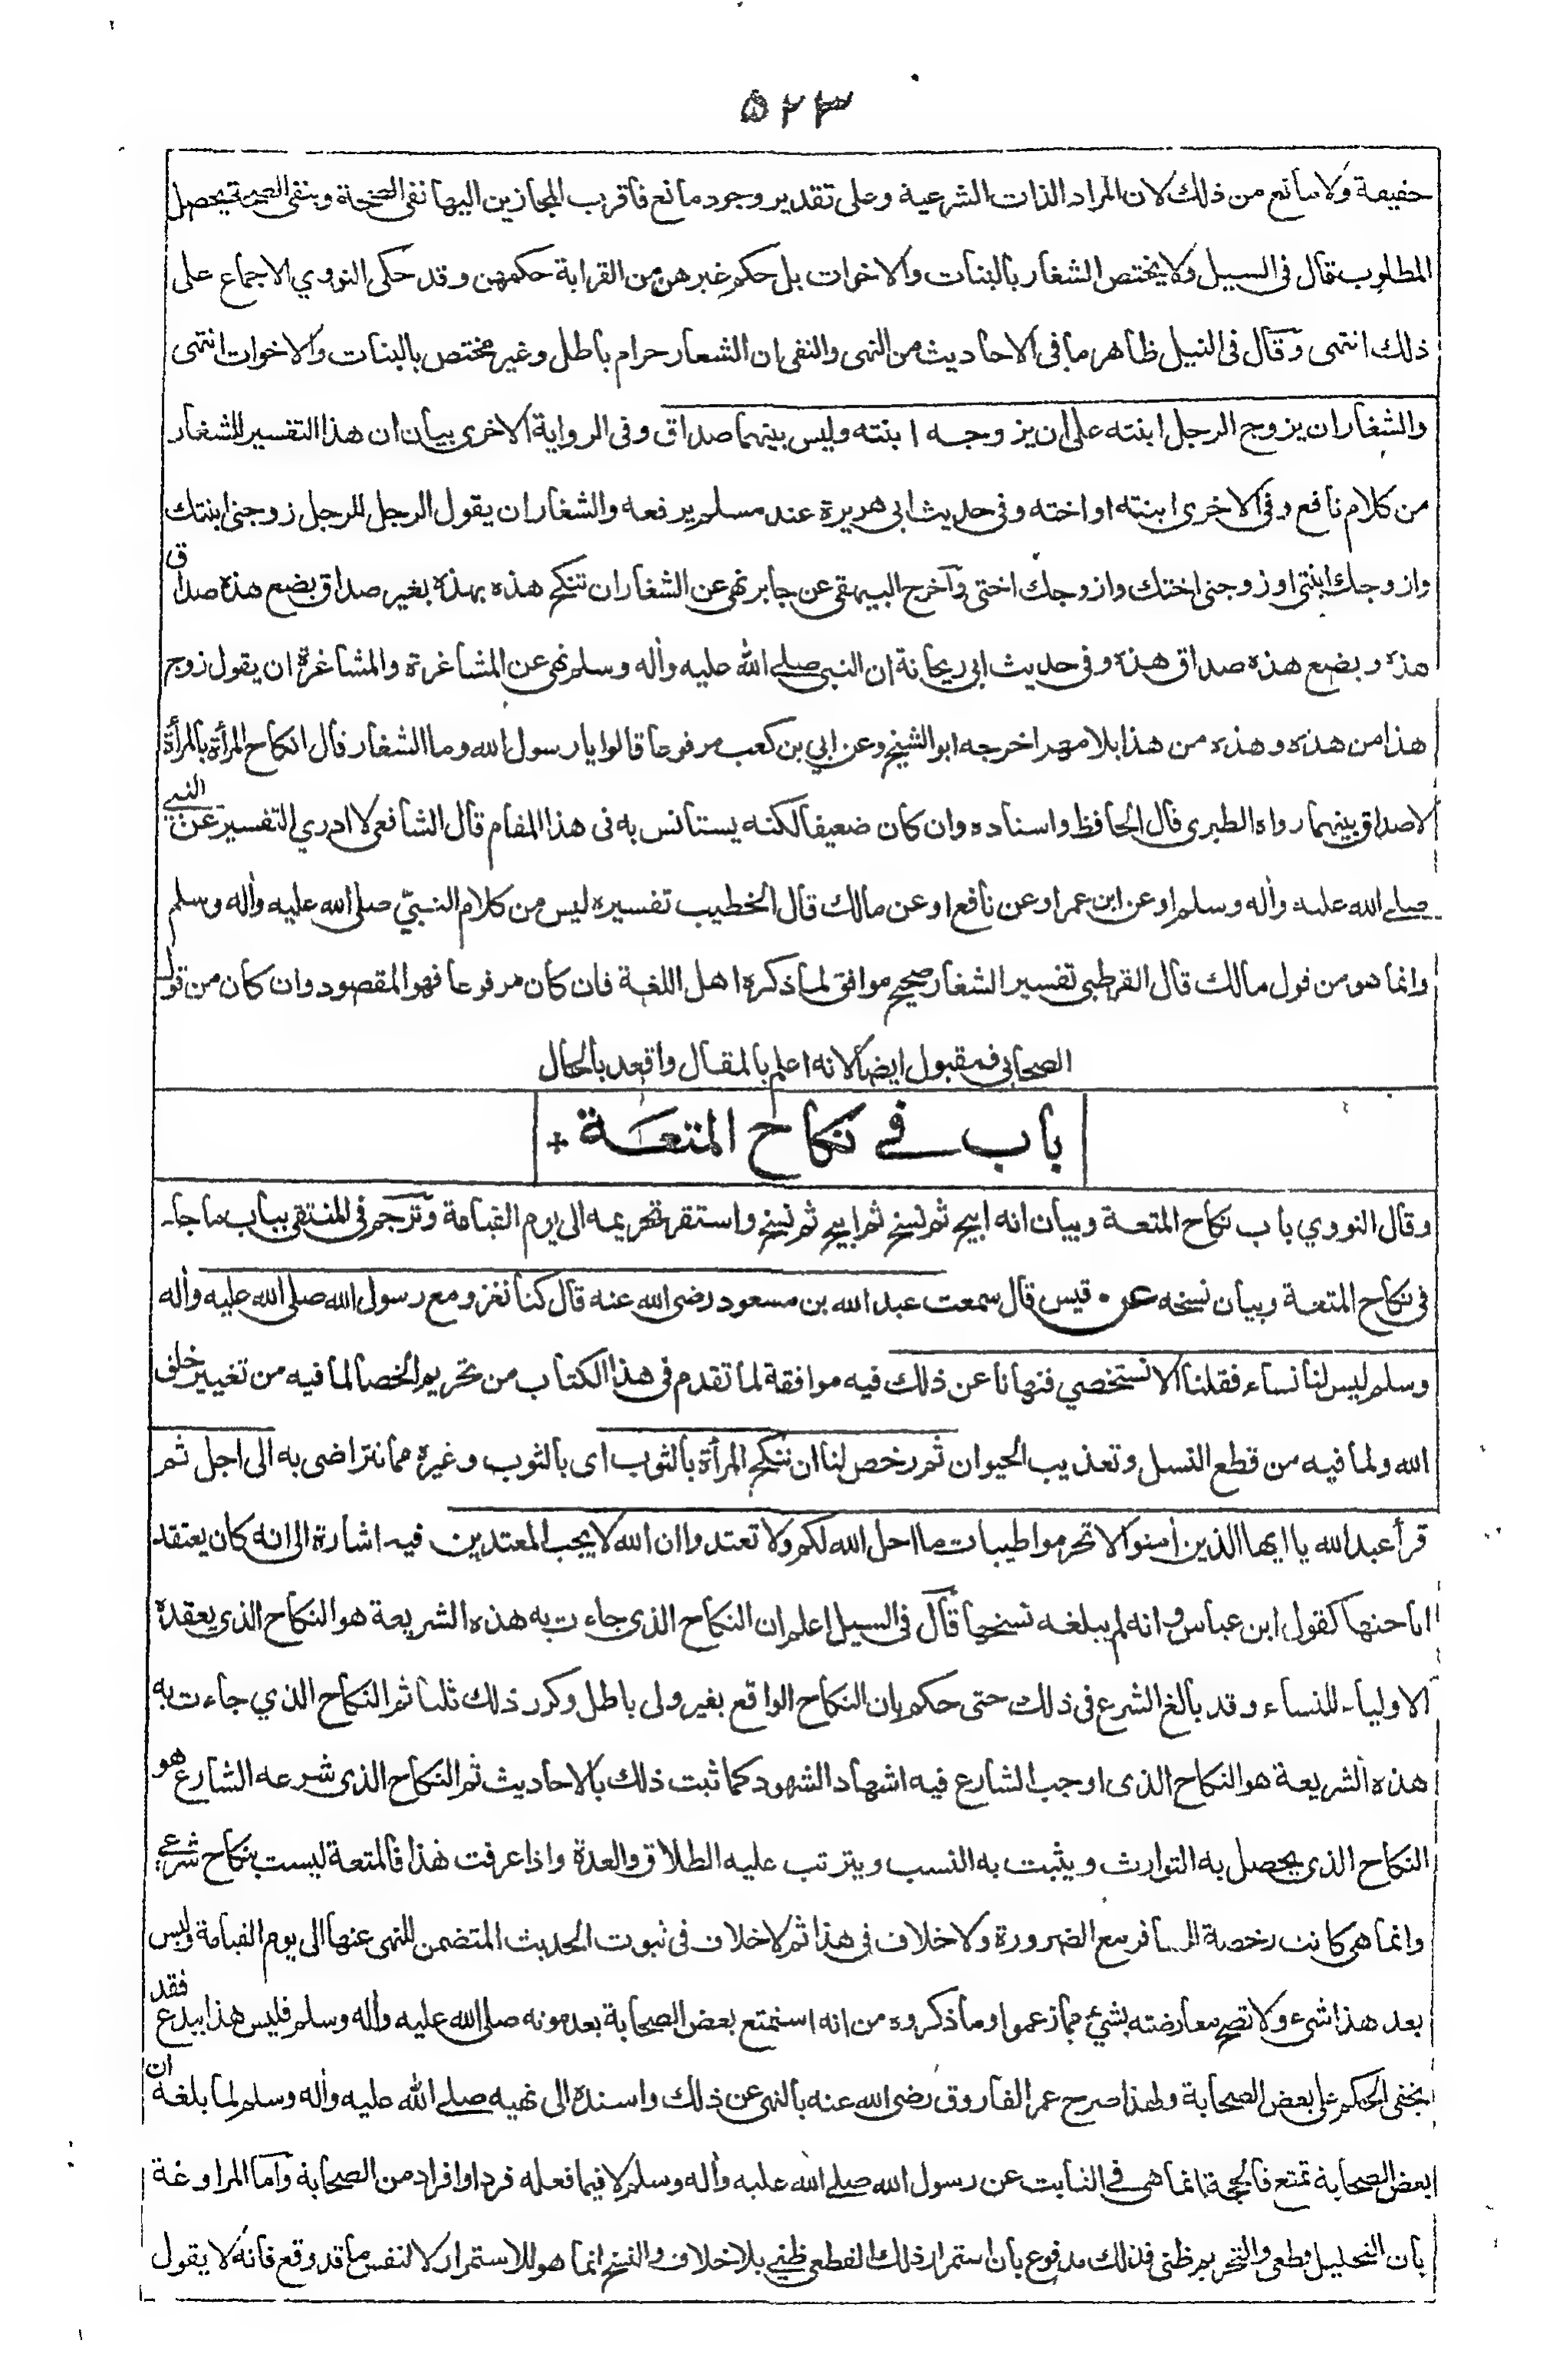 ۵۲۳
حقيقة ولا مانع من ذلك لان المراد الذات الشرعية وعلى تقدير وجود مانع فاقرب المجازين اليها نفى الصحة وبنفى الصحة يحصل
المطلوب قال فى السبيل ولا يختص الشغار بالبنات والاخوات بل حكم غيرهن من القرابة حكمهن وقد حكى النووي الاجماع على
ذلك انتهى وقال فى النيل ظاهر ما فى الاحاديث من النهى والنفى ان الشغار حرام باطل وغير مختص بالبنات والاخوات انتهى
والشغار ان يزوج الرجل ابنته على ان يزوجه ابنته وليس بينهما صداق وفى الرواية الاخرى بيان ان هذا التفسير للشغار
من كلام نافع وفى الاخرى ابنته او اخته وفى حديث ابى هريرة عند مسلم يرفعه والشغار ان يقول الرجل للرجل زوجنى ابنتك
وازوجك ابنتى او زوجنى اختك وازوجك اختى وأخرج البيهقى عن جابر نهى عن الشغار ان تنكح هذه بهذه بغير صداق بضع هذه صداق
هذه وبضع هذه صداق هذه وفى حديث ابى ريحانة ان النبى صلى الله عليه وأله وسلم نهى عن المشاغرة والمشاغرة ان يقول زوج
هذا من هذه وهذه من هذا بلا مهر اخرجه ابو الشيخ وعن ابي بن كعب مرفوعا قالوا يا رسول الله وما الشغار قال انكاح المرأة بالمرأة
لا صداق بينهما رواه الطبرى قال الحافظ واسناده وان كان ضعيفا لكنه يستانس به فى هذا المقام قال الشافعى لا ادري التفسير عن النبى
صلى الله عليه وأله وسلم او عن ابن عمر او عن نافع او عن مالك قال الخطيب تفسيره ليس من كلام النبيّ صلى الله عليه وأله وسلم
وانما هو من قول مالك قال القرطبى تفسير الشغار صحيح موافق لما ذكره اهل اللغة فان كان مرفوعا فهو المقصود وان كان من قول
الصحابى فمقبول ايضا لانه اعلم بالمقال واقعد بالحال
باب فى نكاح المتعة
وقال النووي باب نكاح المتعة وبيان انه ابيح ثم نسخ ثم ابيح ثم نسخ واستقر تحريمه الى يوم القيامة وترجم فى المنتقى بباب ما جاء
فى نكاح المتعة وبيان نسخه عن قيس قال سمعت عبد الله بن مسعود رضى الله عنه قال كنا نغزو مع رسول الله صلى الله عليه وأله
وسلم ليس لنا نساء فقلنا الا نستخصي فنهانا عن ذلك فيه موافقة لما تقدم فى هذا الكتاب من تحريم الخصا لما فيه من تغيير خلق
الله ولما فيه من قطع النسل وتعذيب الحيوان ثم رخص لنا ان ننكح المرأة بالثوب اى بالثوب وغيره مما نتراضى به الى اجل ثم
قرأ عبد الله يا ايها الذين أمنوا لا تحرموا طيبات ما احل الله لكم ولا تعتدوا ان الله لا يحب المعتدين فيه اشارة الى انه كان يعتقد
اباحتها كقول ابن عباس وانه لم يبلغه نسخها قال فى السيل اعلم ان النكاح الذى جاءت به هذه الشريعة هو النكاح الذى يعقده
الاولياء للنساء وقد بالغ الشرع فى ذلك حتى حكم بان النكاح الواقع بغير ولى باطل وكرر ذلك ثلثا ثم النكاح الذي جاءت به
هذه الشريعة هو النكاح الذى اوجب الشارع فيه اشهاد الشهود كما ثبت ذلك بالاحاديث ثم النكاح الذى شرعه الشارع هو
النكاح الذى يحصل به التوارث ويثبت به النسب ويترتب عليه الطلاق والعدة واذا عرفت هذا فالمتعة ليست بنكاح شرعى
وانما هى كانت رخصة للمسافر مع الضرورة ولا خلاف فى هذا ثم لا خلاف فى ثبوت الحديث المتضمن للنهى عنها الى يوم القيامة وليس
بعد هذا شىء ولا تصح معارضته بشيئ مما زعموا وما ذكروه من انه استمتع بعض الصحابة بعد موته صلى الله عليه وأله وسلم فليس هذا ببدع فقد
يخفى الحكم على بعض الصحابة ولهذا صرح عمر الفاروق رضى الله عنه بالنهى عن ذلك واسنده الى نهيه صلى الله عليه وأله وسلم لما بلغه ان
بعض الصحابة تمتع فالحجة انما هى فى الثابت عن رسول الله صلى الله عليه وأله وسلم لا فيما فعله فرد او افراد من الصحابة وأما المراوغة
بان التحليل قطعى والتحريم ظنى فذلك مدفوع بان استمرار ذلك القطعى ظنى بلا خلاف والنسخ انما هو للاستمرار لا لنفس ما قد وقع فانه لا يقول